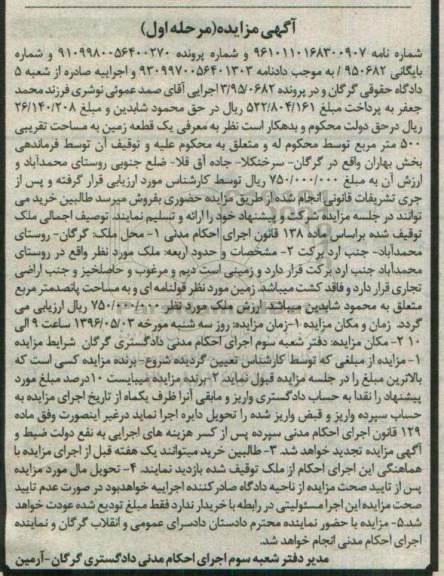 آگهی مزایده(مرحله اول)
شماره نامه ۹۶۱۰۱۱۰۱۶۸۳۰۰۹۰۷ و شماره پرونده ۹۱۰۹۹۸۰۰۵۶۴۰۰۲۷۰ و شماره
بایگانی ۹۵۰۶۸۲ / به موجب دادنامه ۹۳۰۹۹۷۰۰۵۶۴۰۱۳۰۳ و اجراییه صادره از شعبه ۵
دادگاه حقوقی گرگان و در پرونده ۳/۹۵/۰۶۸۲ اجرایی آقای صمد عموئی نوشری فرزند محمد
جعفر به پرداخت مبلغ ۵۲۲/۸۰۴/۱۶۱ ریال در حق محمود شابدین و مبلغ ۲۶/۱۴۰/۲۰۸
ریال درحق دولت محکوم و بدهکار است نظر به معرفی یک قطعه زمین به مساحت تقریبی
۵۰۰ متر مربع توسط محکوم له و متعلق به محکوم علیه و توقیف آن توسط فرماندهی
بخش بهاران واقع در گرگان- سرخنکلا- جاده آق قلا- ضلع جنوبی روستای محمدآباد و
ارزش آن به مبلغ ۷۵۰/۰۰۰/۰۰۰ ریال توسط کارشناس مورد ارزیابی قرار گرفته و پس از
جری تشریفات قانونی انجام شده از طریق مزایده حضوری بفروش میرسد طالبین خرید می
توانند در جلسه مزایده شرکت و پیشنهاد خود را ارائه و تسلیم نمایند. توصیف اجمالی ملک
توقیف شده براساس ماده ۱۳۸ قانون اجرای احکام مدنی ۱- محل ملک: گرگان- روستای
محمدآباد- جنب ارد برکت ۲- مشخصات و حدود اربعه: ملک مورد نظر واقع در روستای
محمدآباد جنب ارد برکت قرار دارد و زمینی است دیم و مرغوب و حاصلخیز و جنب اراضی
تجاری قرار دارد و فاقد کشت میباشد. زمین مورد نظر قولنامه ای و به مساحت پانصدمتر مربع
متعلق به محمود شابدین میباشد. ارزش ملک مورد نظر ۷۵۰/۰۰۰/۰۰۰ ریال ارزیابی می
گردد. زمان و مکان مزایده ۱-زمان مزایده: روز سه شنبه مورخه ۱۳۹۶/۰۵/۰۳ ساعت ۹ الی
۱۰ ۲-مکان مزایده: دفتر شعبه سوم اجرای احکام مدنی دادگستری گرگان شرایط مزایده
۱-مزایده از مبلغی که توسط کارشناس تعیین گردیده شروع- برنده مزایده کسی است که
بالاترین مبلغ را در جلسه مزایده قبول نماید ۲-برنده مزایده میبایست ۱۰درصد مبلغ مورد
پیشنهاد را نقدا به حساب دادگستری واریز و مابقی آنرا ظرف یکماه از تاریخ اجرای مزایده به
حساب سپرده واریز و قبض واریز شده را تحویل دایره اجرا نماید درغیر اینصورت وفق ماده
۱۲۹ قانون اجرای احکام مدنی سپرده پس از کسر هزینه های اجرایی به نفع دولت ضبط و
آگهی مزایده تجدید خواهد شد. ۳- طالبین خرید میتوانند یک هفته قبل از اجرای مزایده با
هماهنگی این اجرای احکام از ملک توقیف شده بازدید نمایند. ۴- تحویل مال مورد مزایده
پس از تایید صحت مزایده از ناحیه دادگاه صادرکننده اجراییه خواهدبود در صورت عدم تایید
صحت مزایده این اجرا مسئولیتی در رابطه با خریدار ندارد فقط مبلغ تودیع شده عودت خواهد
شد.۵- مزایده با حضور نماینده محترم دادستان دادسرای عمومی و انقلاب گرگان و نماینده
اجرای احکام مدنی انجام خواهد شد.
مدیر دفتر شعبه سوم اجرای احکام مدنی دادگستری گرگان-آرمین